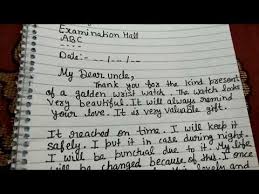 Examination Hall
ABC
Date:-
My Dear uncle,
Thank you for the kind present
of a golden wrist watch. The watch looks
very beautiful. It will always remind
your love. It is very valuable gift.
It reached on time. I will keep it
safely. I put it in case during night.
I will be punctual due to it. My life
will be changed because of this. I once
lovely and